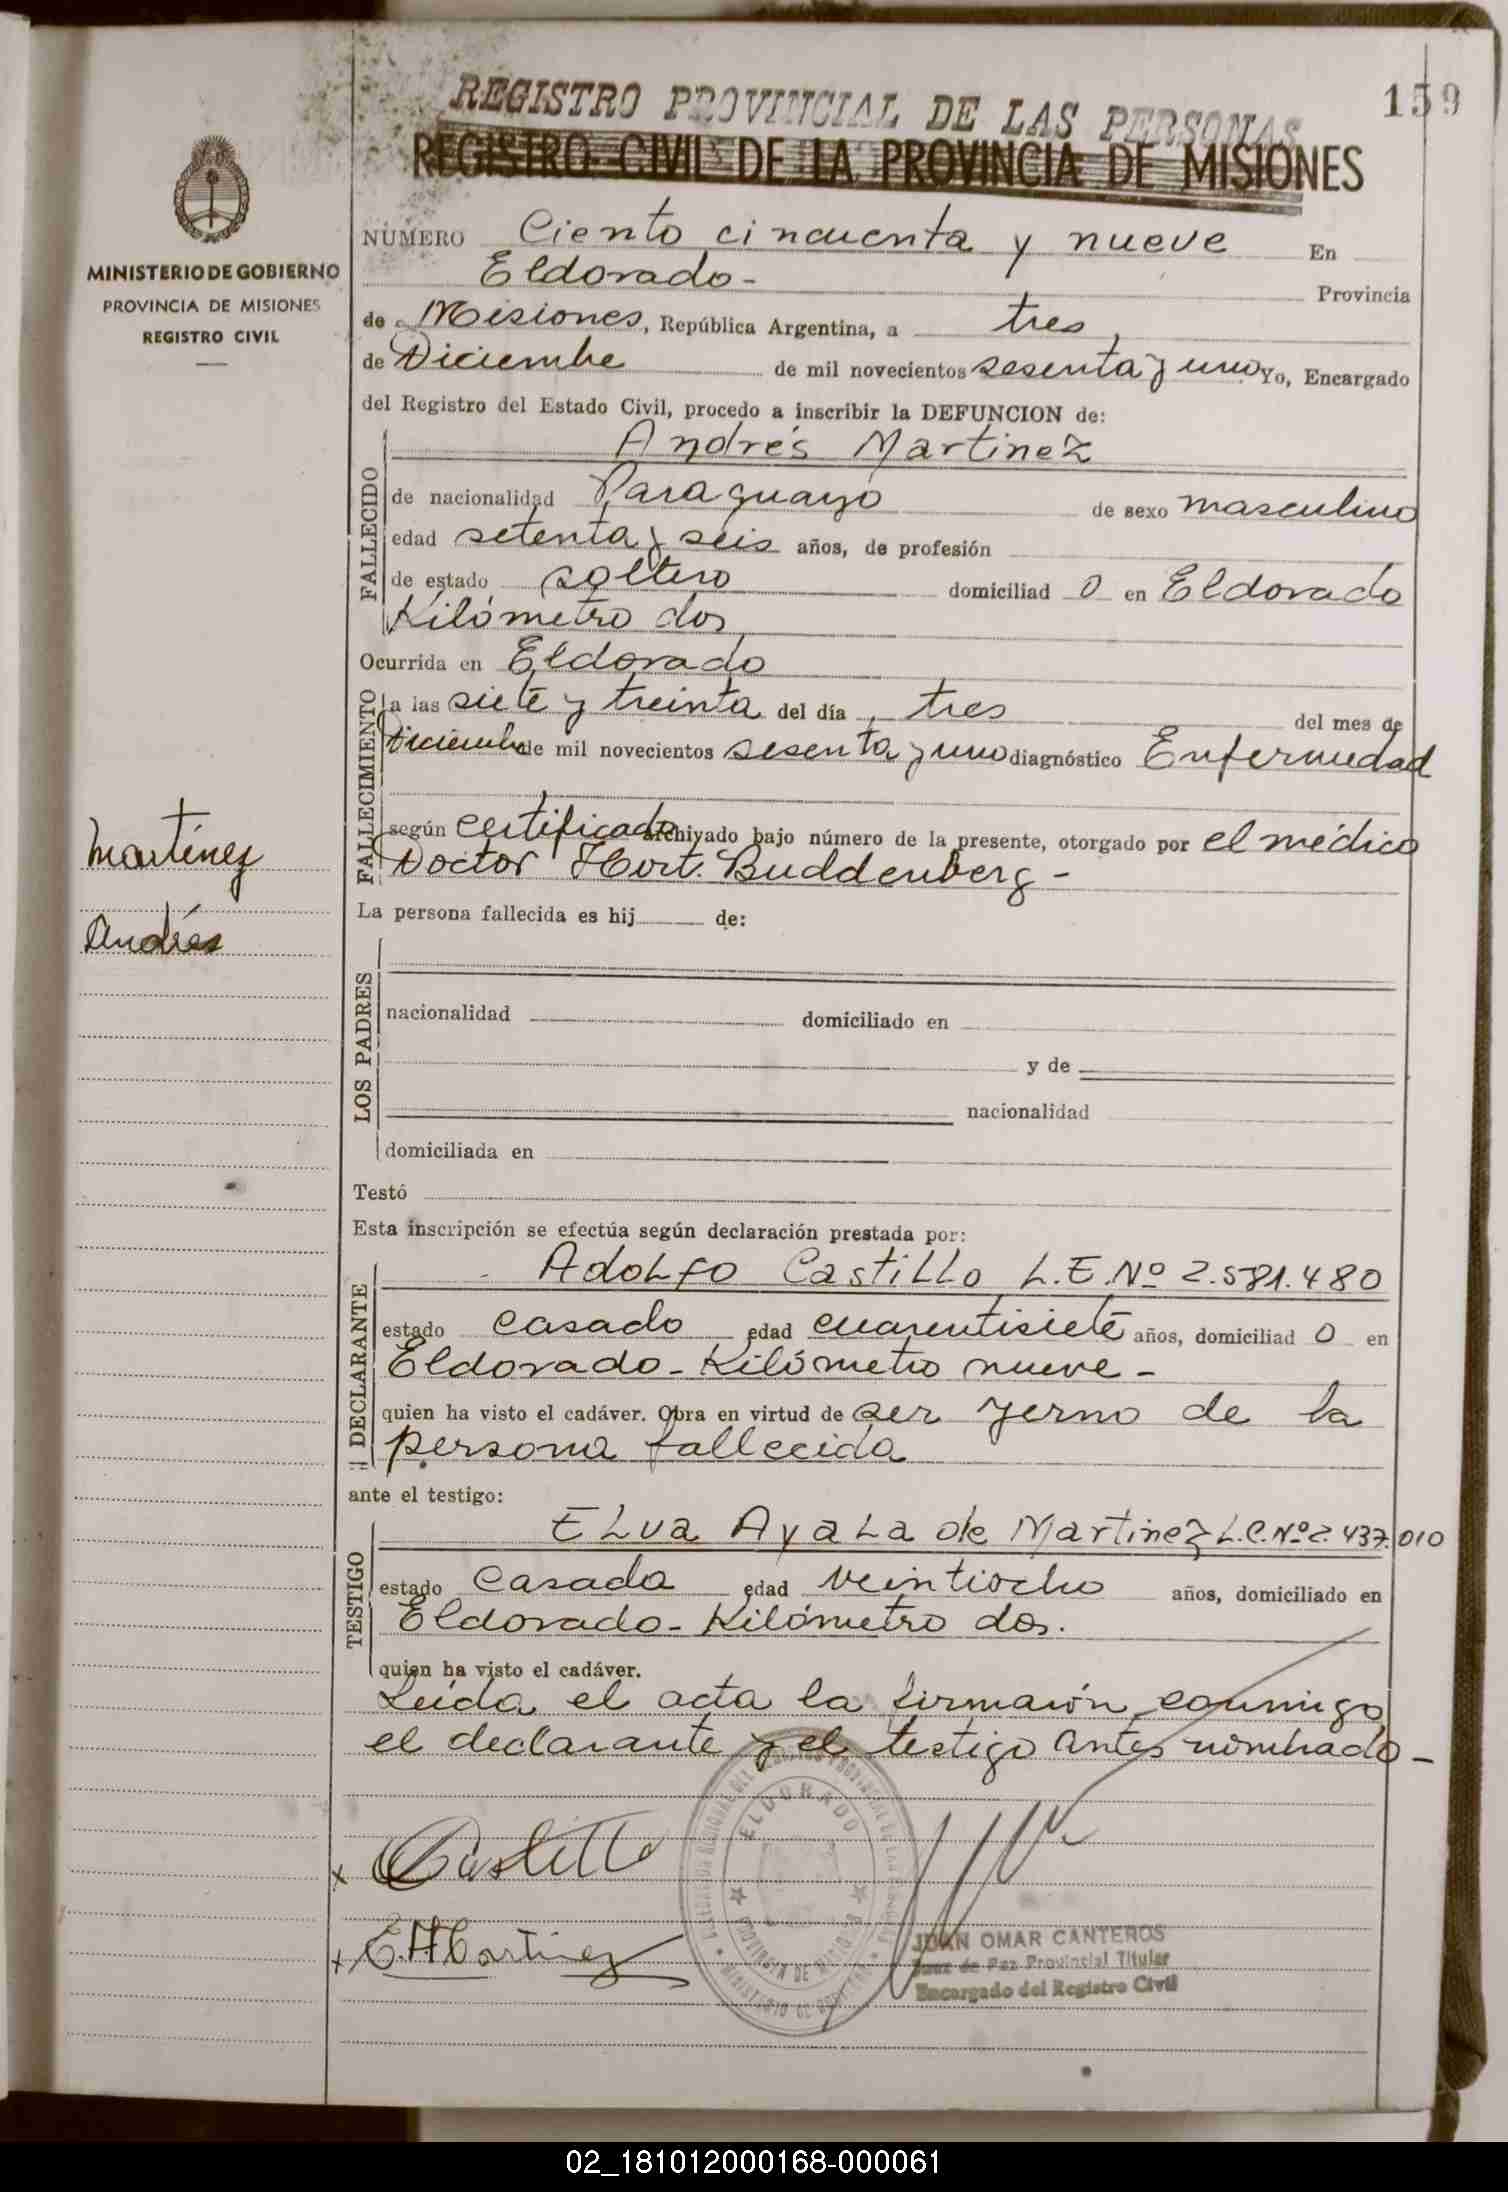 159
REGISTRO PROVINCIAL DE LAS PERSONAS
REGISTRO CIVIL DE LA PROVINCIA DE MISIONES
MINISTERIO DE GOBIERNO
PROVINCIA DE MISIONES
REGISTRO CIVIL
NÚMERO Ciento cincuenta y nueve En
Eldorado - Provincia
de Misiones, República Argentina, a tres
de Diciembre de mil novecientos sesenta y uno Yo, Encargado
del Registro del Estado Civil, procedo a inscribir la DEFUNCION de:
FALLECIDO
Andrés Martinez
de nacionalidad Paraguayo de sexo masculino
edad setenta y seis años, de profesión
de estado soltero domiciliad o en Eldorado
Kilómetro dos
Ocurrida en Eldorado
FALLECIMIENTO
a las siete y treinta del día tres del mes de
Diciembre de mil novecientos sesenta y uno diagnóstico Enfermedad
según certificado archivado bajo número de la presente, otorgado por el médico
Doctor Hort. Buddenberg -
Martínez
Andrés
La persona fallecida es hij de:
LOS PADRES
nacionalidad domiciliado en
y de
nacionalidad
domiciliada en
Testó
Esta inscripción se efectúa según declaración prestada por:
DECLARANTE
Adolfo Castillo L.E.Nº 2.581.480
estado casado edad cuarentisiete años, domiciliad o en
Eldorado - Kilómetro nueve -
quien ha visto el cadáver. Obra en virtud de ser yerno de la
persona fallecida
ante el testigo:
TESTIGO
Elva Ayala de Martinez L.C.Nº 2.437.010
estado casada edad veintiocho años, domiciliado en
Eldorado - Kilómetro dos.
quien ha visto el cadáver.
Leida el acta la firmaron conmigo
el declarante y el testigo antes nombrado -
x Castillo
ELDORADO
x E. A Martinez
PROVINCIA DE MISIONES
JUAN OMAR CANTEROS
Juez de Paz Provincial Titular
Encargado del Registro Civil
02_181012000168-000061